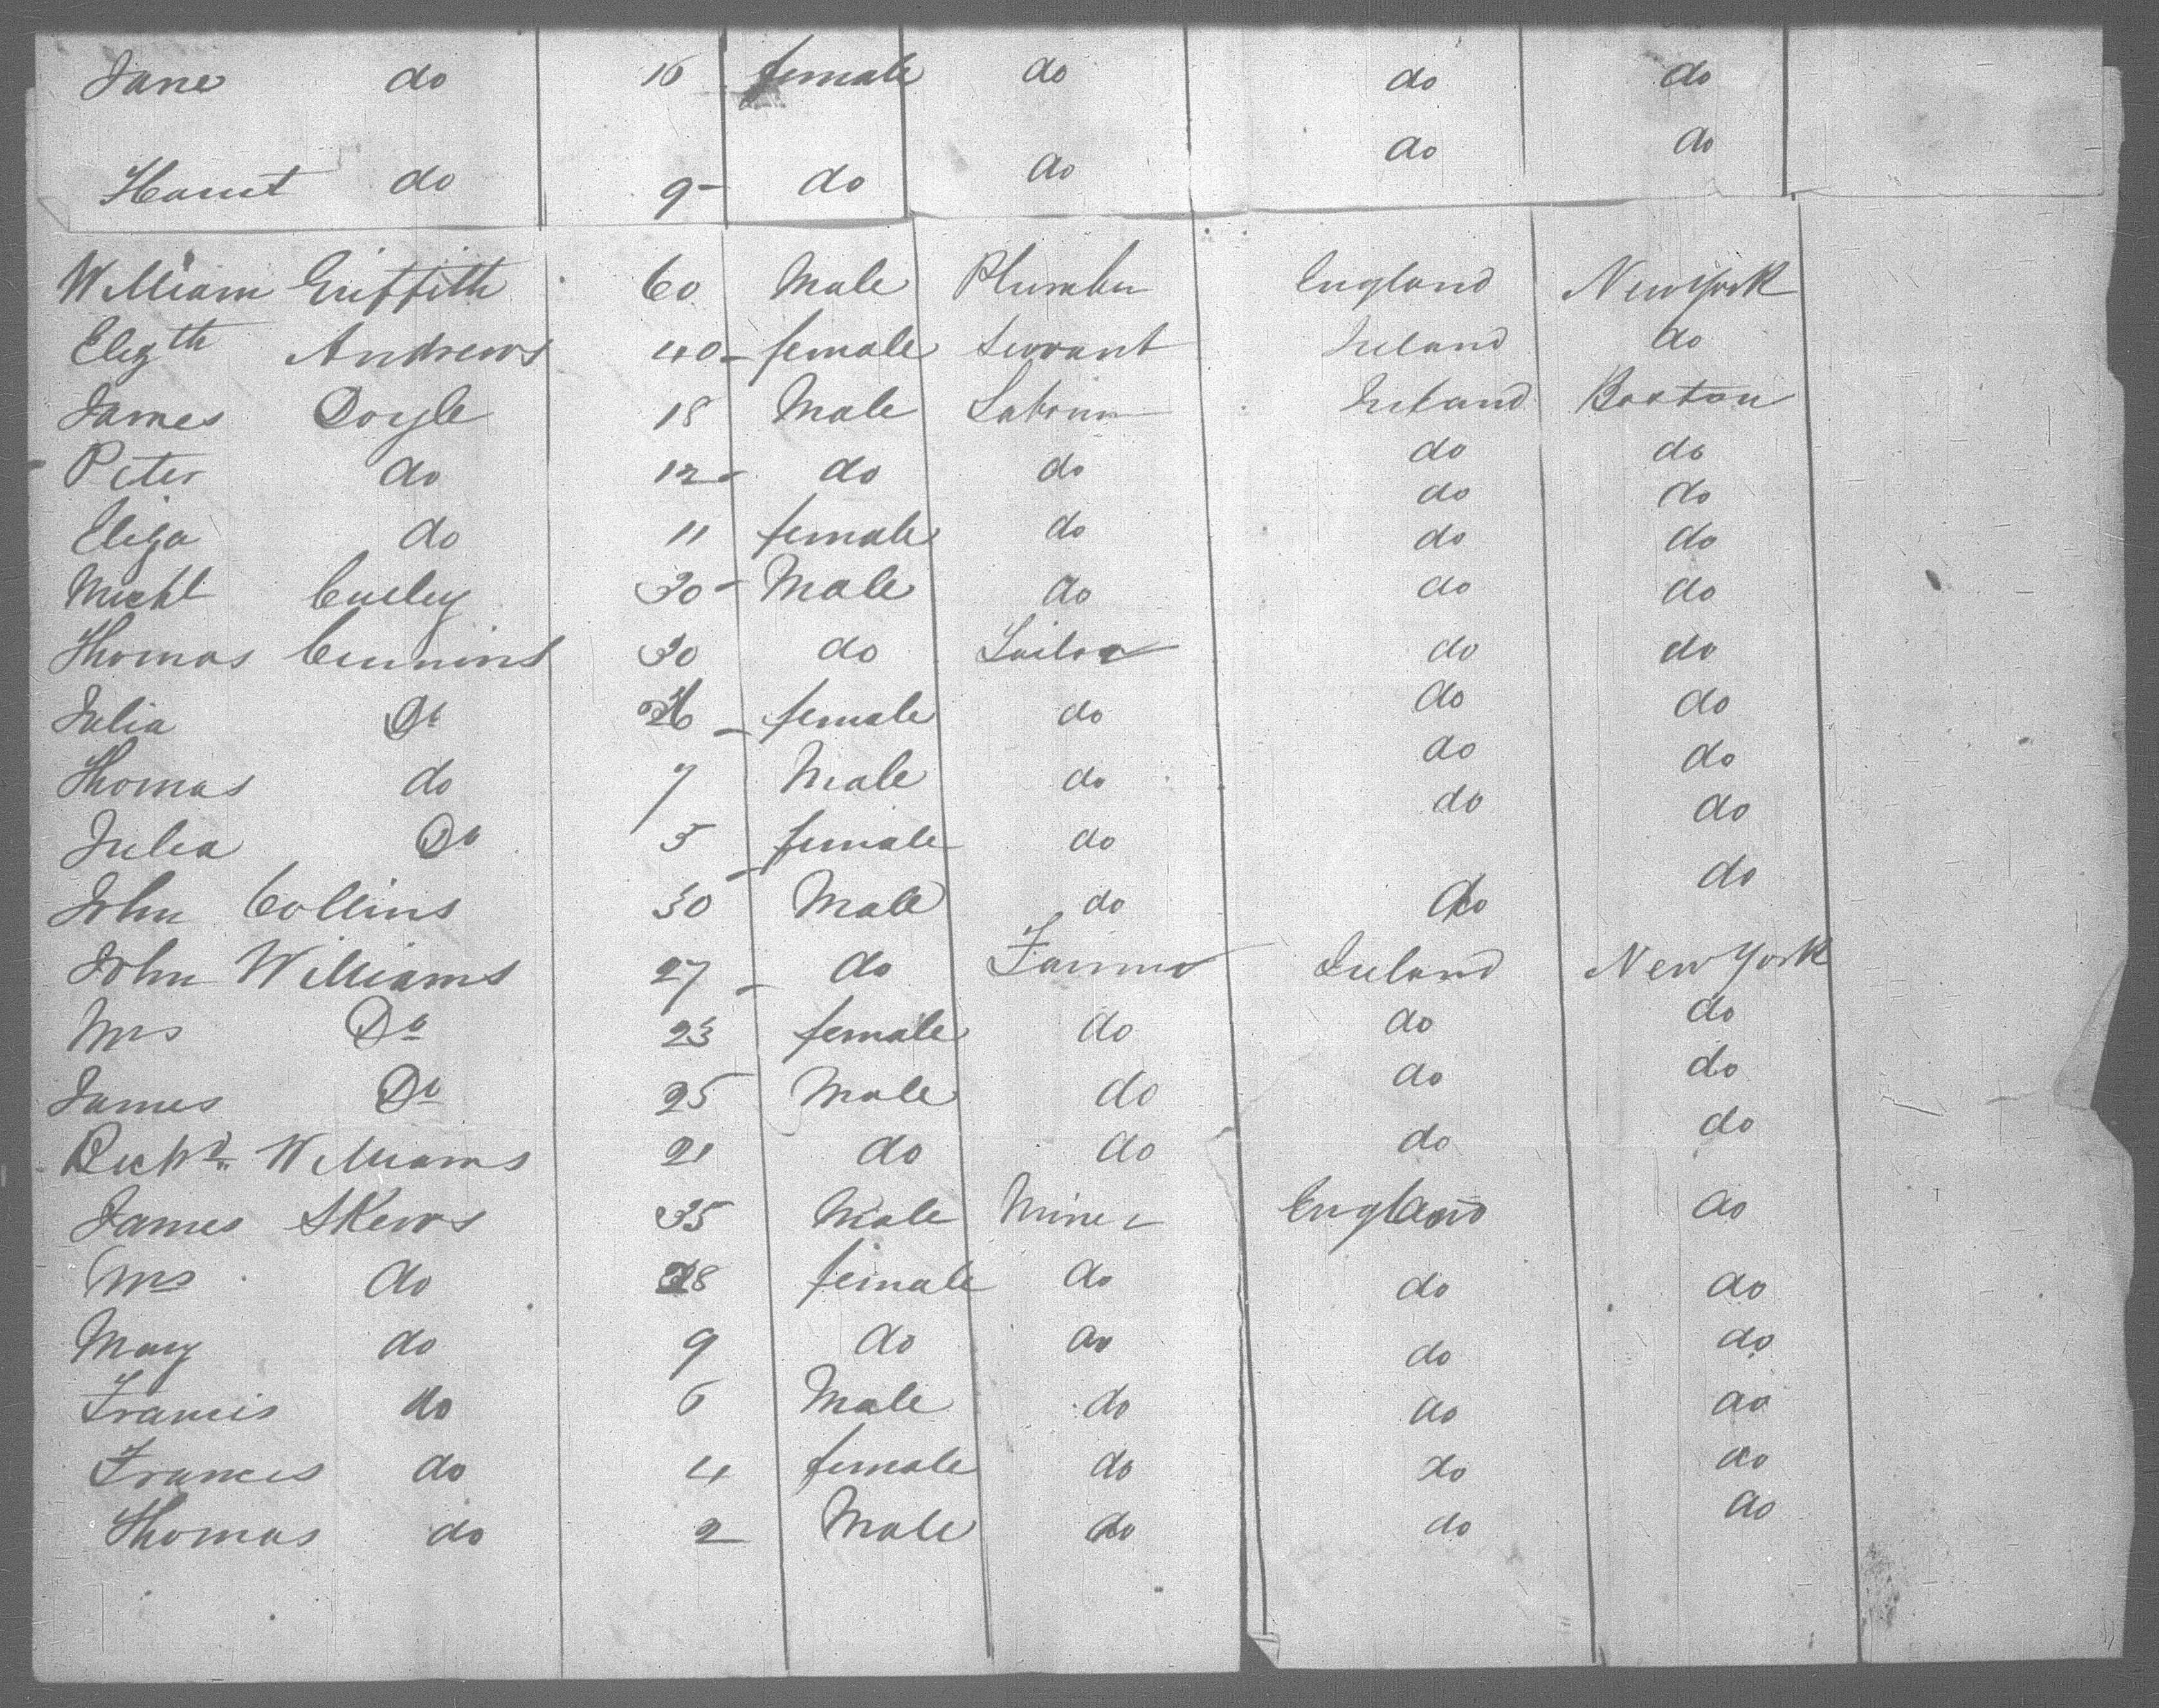 Jane do 16 female do do do
Harriet do 9 do do do do
William Griffith 60 Male Plumber England New York
Elizth Andrews 40 female Servant Ireland do
James Doyle 18 Male Labourer Ireland Boston
Peter do 12 do do do do
Eliza do 11 female do do do
Michl Curley 30 Male do do do
Thomas Cummins 30 do Sailor do do
Julia Do 26 female do do do
Thomas do 7 Male do do do
Julia Do 5 female do do do
John Collins 30 Male do do do
John Williams 27 do Farmer Ireland New York
Mrs Do 23 female do do do
James Do 25 Male do do do
Richd Williams 21 do do do do
James Skews 35 Male Miner England do
Mrs do 28 female do do do
Mary do 9 do do do do
Francis do 6 Male do do do
Frances do 4 female do do do
Thomas do 2 Male do do do